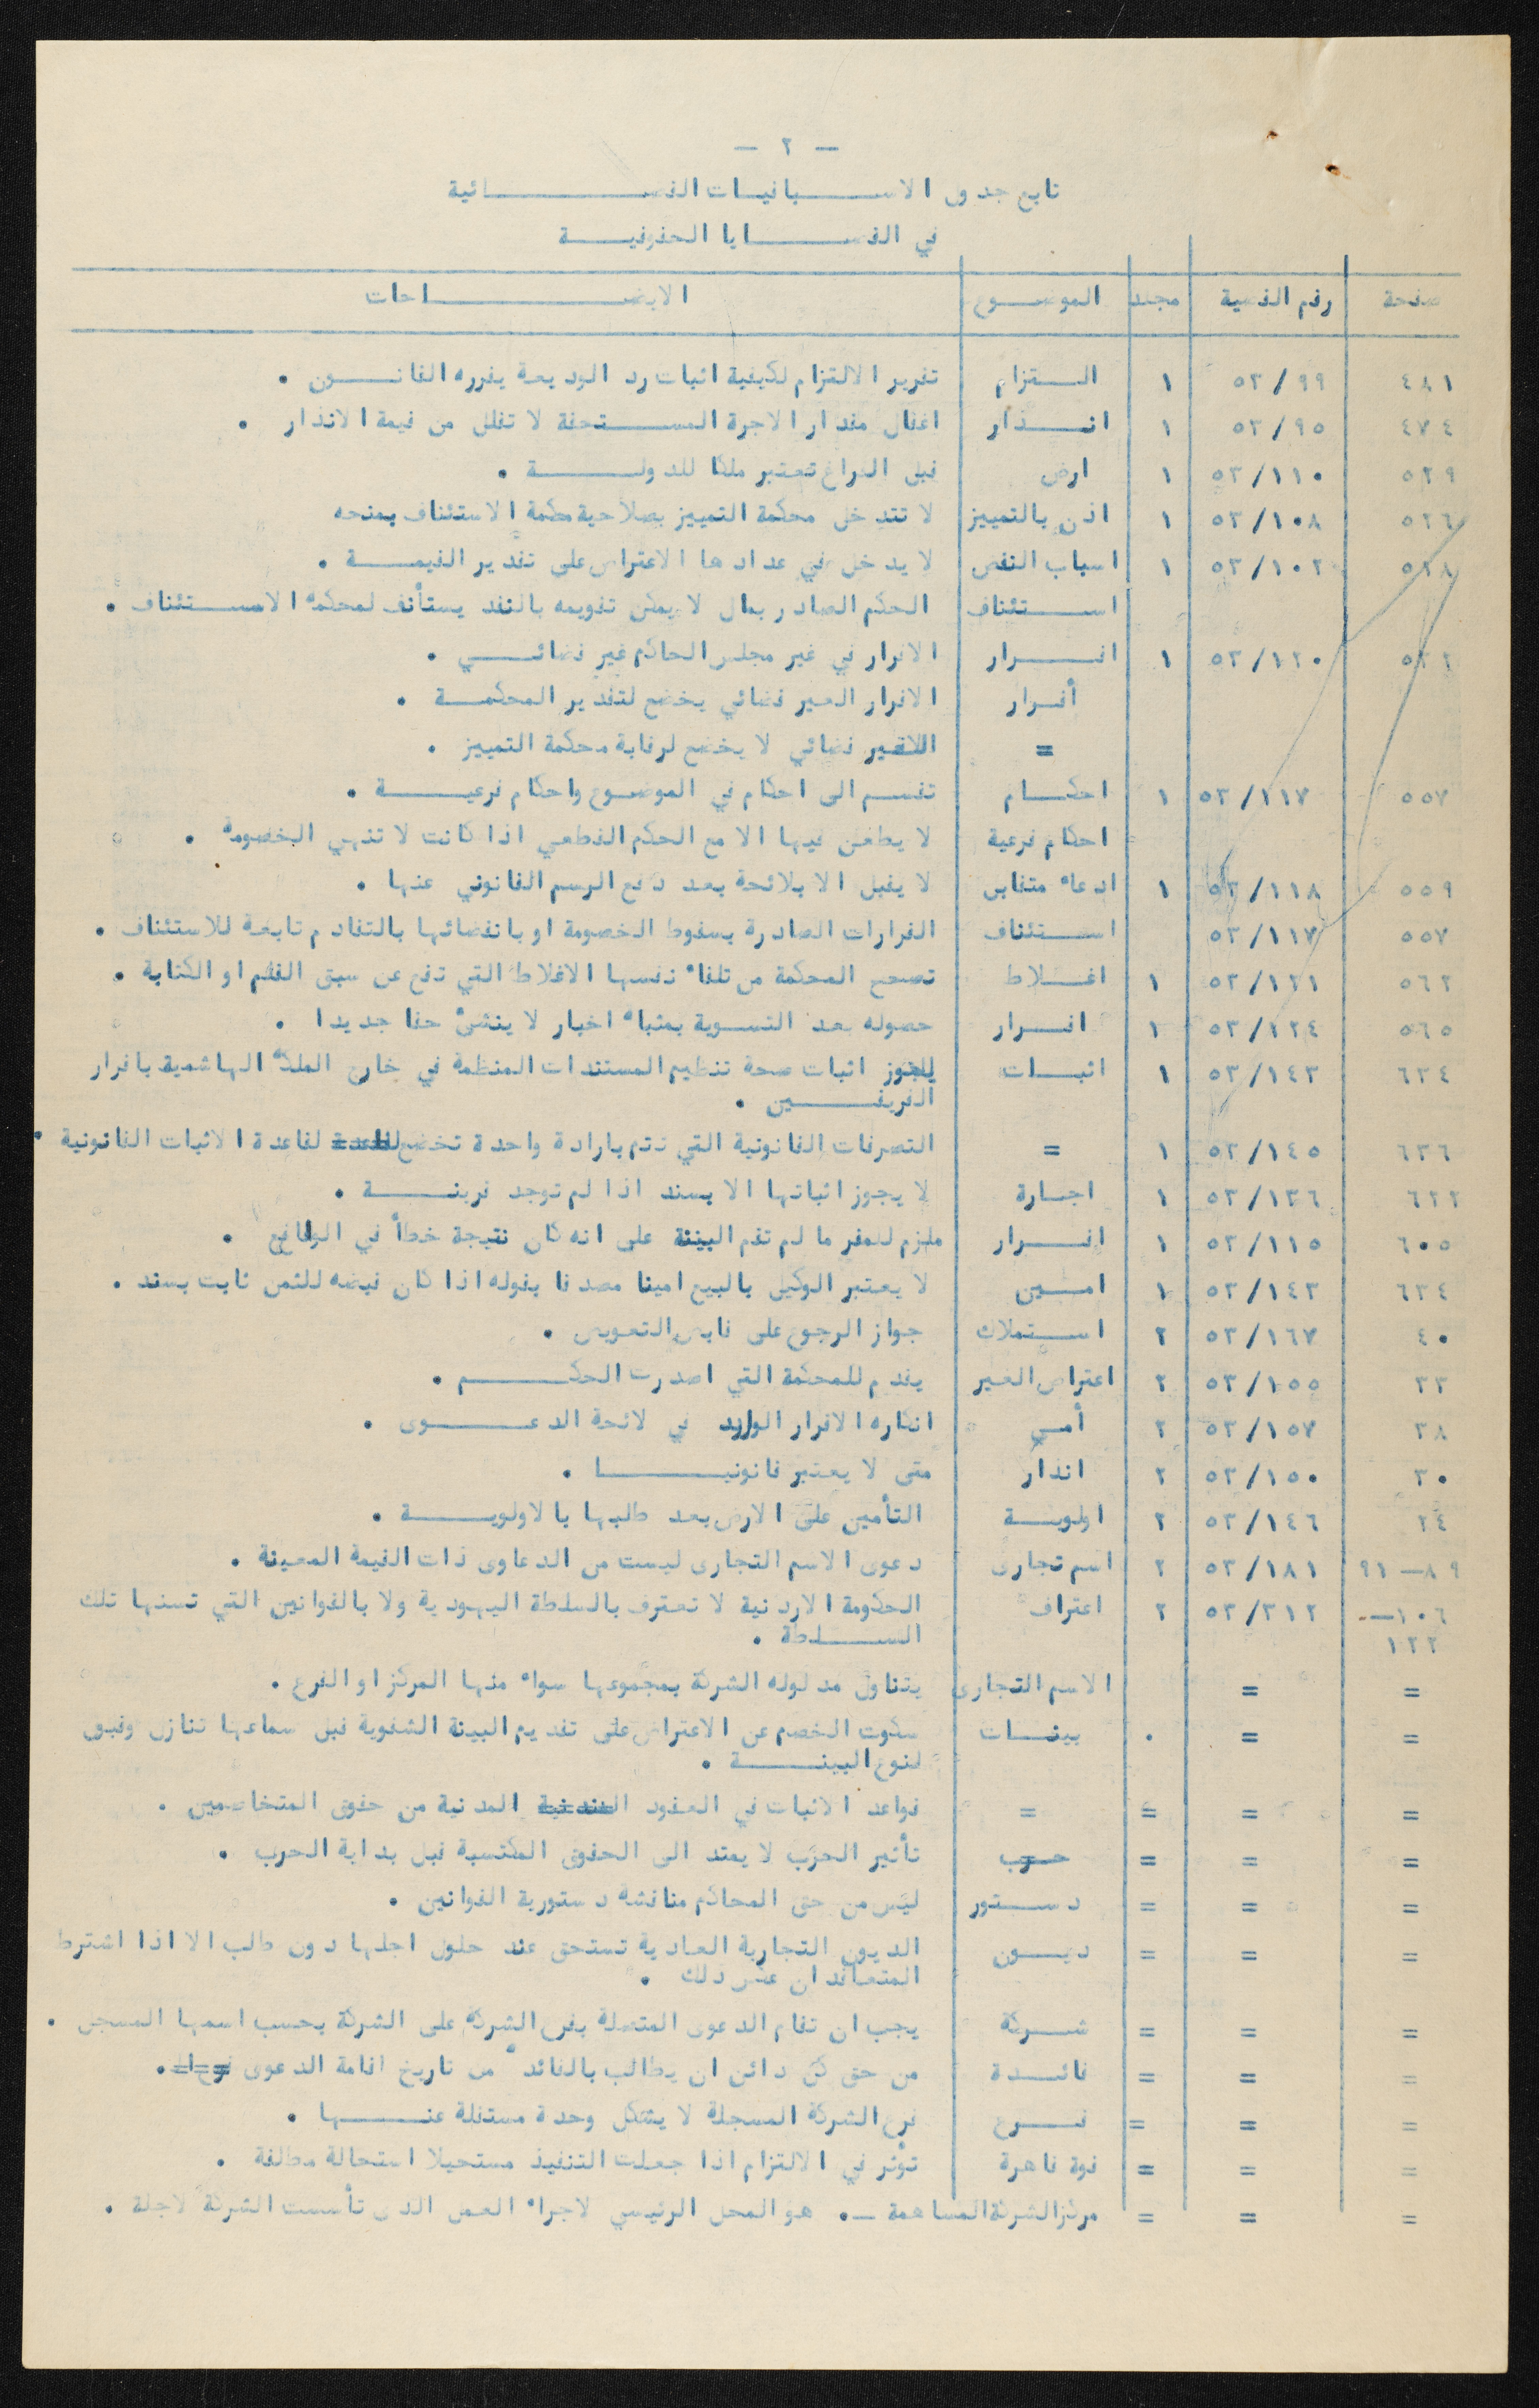 — ٢ —
تابع جدول الاسبانيات القضائية
في القضايا الحقوقية
صفحة رقم القضية مجلد الموضوع الايضاحات
٤٨١ ٥٣/٩٩ ١ التزام تقرير الالتزام لكيفية اثبات رد الوديعة يقرره القانون .
٤٧٤ ٥٣/٩٥ ١ انذار اغفال مقدار الاجرة المستحقة لا تقلل من قيمة الانذار .
٥٢٩ ٥٣/١١٠ ١ ارض قبل الفراغ تعتبر ملكا للدولة .
٥٢٦ ٥٣/١٠٨ ١ اذن بالتمييز لا تتدخل محكمة التمييز بصلاحية محكمة الاستئناف بمنحه
٥٢٨ ٥٣/١٠٢ ١ اسباب النقض لا يدخل في عدادها الاعتراض على تقدير القيمة .
استئناف الحكم الصادر بمال لا يمكن تقويمه بالنقد يستأنف لمحكمة الاستئناف .
٥٣٢ ٥٣/١٢٠ ١ اقرار الاقرار في غير مجلس الحاكم غير قضائي .
أقرار الاقرار الغير قضائي يخضع لتقدير المحكمة .
= الغير قضائي لا يخضع لرقابة محكمة التمييز .
٥٥٧ ٥٣/١١٧ ١ احكام تقسم الى احكام في الموضوع واحكام فرعية .
احكام فرعية لا يطعن فيها الا مع الحكم القطعي اذا كانت لا تنهي الخصومة .
٥٥٩ ٥٣/١١٨ ١ ادعاء متقابل لا يقبل الا بلائحة بعد دفع الرسم القانوني عنها .
٥٥٧ ٥٣/١١٧ استئناف القرارات الصادرة بسقوط الخصومة او بانقضائها بالتقادم تابعة للاستئناف .
٥٦٢ ٥٣/١٢١ ١ اغلاط تصحح المحكمة من تلقاء نفسها الاغلاط التي تقع عن سبق القلم او الكتابة .
٥٦٥ ٥٣/١٢٤ ١ اقرار حصوله بعد التسوية بمثابة اخبار لا ينشئ حقا جديدا .
٦٣٤ ٥٣/١٤٣ ١ اثبات يجوز اثبات صحة تنظيم المستندات المنظمة في خارج الملكة الهاشمية باقرار
الفريقين .
٦٣٦ ٥٣/١٤٥ ١ = التصرفات القانونية التي تتم بارادة واحدة تخضع لقاعدة الاثبات القانونية .
٦٢٢ ٥٣/١٣٦ ١ اجارة لا يجوز اثباتها الا بسند اذا لم توجد قرينة .
٦٠٥ ٥٣/١١٥ ١ اقرار ملزم للمقر ما لم تقم البينة على انه كان نتيجة خطأ في الواقع .
٦٣٤ ٥٣/١٤٣ ١ امين لا يعتبر الوكيل بالبيع امينا مصدقا بقوله اذا كان قبضه للثمن ثابت بسند .
٤٠ ٥٣/١٦٧ ٢ استملاك جواز الرجوع على قابض التعويض .
٣٣ ٥٣/١٥٥ ٢ اعتراض الغير يقدم للمحكمة التي اصدرت الحكم .
٣٨ ٥٣/١٥٧ ٢ أمي انكاره الاقرار الوارد في لائحة الدعوى .
٣٠ ٥٣/١٥٠ ٢ انذار متى لا يعتبر قانونيا .
٢٤ ٥٣/١٤٦ ٢ اولوية التأمين على الارض بعد طلبها بالاولوية .
٨٩—٩١ ٥٣/١٨١ ٢ اسم تجارى دعوى الاسم التجارى ليست من الدعاوى ذات القيمة المعينة .
١٠٦— ٥٣/٣١٢ ٢ اعتراف الحكومة الاردنية لا تعترف بالسلطة اليهودية ولا بالقوانين التي تسنها تلك
١٢٢ السلطة .
= = الاسم التجارى يتناول مدلوله الشركة بمجموعها سواء منها المركز او الفرع .
= = . بينات سكوت الخصم عن الاعتراض على تقديم البينة الشفوية قبل سماعها تنازل وقبول
لنوع البينة .
= = = = قواعد الاثبات في العقود المدنية من حقوق المتخاصمين .
= = = حرب تأثير الحرب لا يمتد الى الحقوق المكتسبة قبل بداية الحرب .
= = = دستور ليس من حق المحاكم مناقشة دستورية القوانين .
= = = ديون الديون التجارية العادية تستحق عند حلول اجلها دون طلب الا اذا اشترط
المتعاقدان عكس ذلك .
= = = شركة يجب ان تقام الدعوى المتصلة بفرع الشركة على الشركة بحسب اسمها المسجل .
= = = فائدة من حق كل دائن ان يطالب بالفائدة من تاريخ اقامة الدعوى .
= = = فرع فرع الشركة المسجلة لا يشكل وحدة مستقلة عنها .
= = = قوة قاهرة تؤثر في الالتزام اذا جعلت التنفيذ مستحيلا استحالة مطلقة .
= = = مركز الشركة المساهمة —. هو المحل الرئيسي لاجراء العمل الذى تأسست الشركة لاجله .